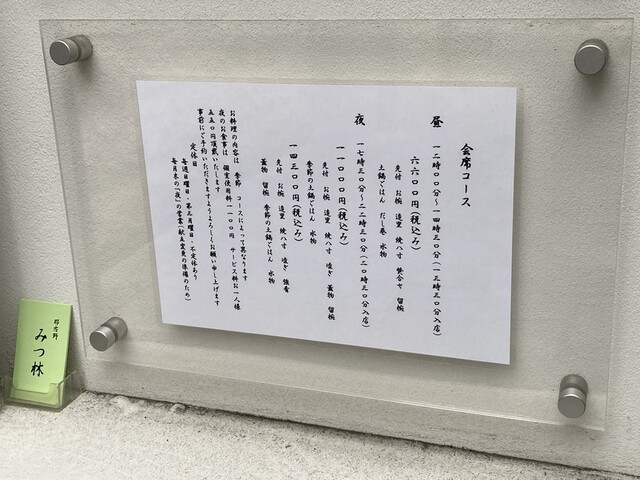 会席コース
昼 一二時〇〇分～一四時三〇分(一三時三〇分入店)
六六〇〇円(税込み)
先付 お椀 造里 焼八寸 炊合せ 留椀
土鍋ごはん だし巻 水物
夜 一七時三〇分～二二時三〇分(二〇時三〇分入店)
一一〇〇〇円(税込み)
先付 お椀 造里 焼八寸 凌ぎ 蓋物 留椀
季節の土鍋ごはん 水物
一四三〇〇円(税込み)
先付 お椀 造里 焼八寸 凌ぎ 強肴
蓋物 留椀 季節の土鍋ごはん 水物
お料理の内容は 季節 コースによって異なります
夜のお食事は 個室使用料一一〇〇円 サービス料お一人様
五五〇円頂戴いたします
事前にご予約いただきますようよろしくお願い申し上げます
定休日
毎週日曜日・第三月曜日・不定休あり
毎月末の「夜」の営業(献立変更の準備のため)
みつ林